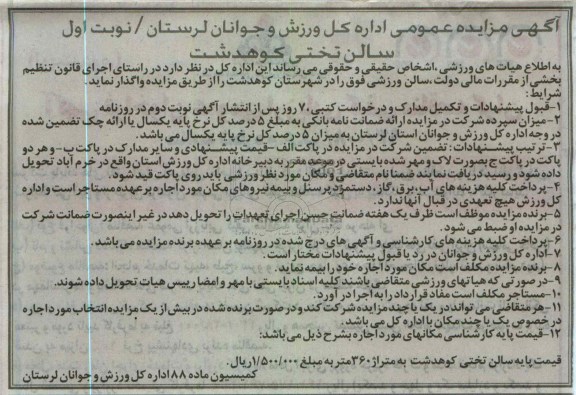 آگهی مزایده عمومی اداره کل ورزش و جوانان لرستان / نوبت اول
سالن تختی کوهدشت
به اطلاع هیات های ورزشی ،اشخاص حقیقی و حقوقی می رساند این اداره کل در نظر دارد در راستای اجرای قانون تنظیم
بخشی از مقررات مالی دولت، سالن ورزشی فوق را در شهرستان کوهدشت را از طریق مزایده واگذار نماید.
شرایط:
۱-قبول پیشنهادات و تکمیل مدارک و درخواست کتبی ۷۰ روز پس از انتشار آگهی نوبت دوم در روزنامه
۲-میزان سپرده شرکت در مزایده ارائه ضمانت نامه بانکی به مبلغ ۵ درصد کل نرخ پایه یکسال یا ارائه چک تضمین شده
در وجه اداره کل ورزش و جوانان استان لرستان به میزان ۵ درصد کل نرخ پایه یکسال می باشد.
۳-ترتیب پیشنهادات: تضمین شرکت در مزایده در پاکت الف -قیمت پیشنهادی و سایر مدارک در پاکت ب- و هر دو
پاکت در پاکت ج بصورت لاک و مهر شده بایستی در موعد مقرر به دبیرخانه اداره کل ورزش استان واقع در خرم آباد تحویل
داده شود و رسید دریافت نمایند ضمنا نام متقاضی و مکان مورد نظر ورزشی باید روی پاکت قید شود.
۴-پرداخت کلیه هزینه های آب، برق، گاز، دستمزد پرسنل و بیمه نیروهای مکان مورد اجاره بر عهده مستاجر است و اداره
کل ورزش هیچ تعهدی در قبال آنها ندارد.
۵-برنده مزایده موظف است ظرف یک هفته ضمانت حسن اجرای تعهدات را تحویل دهد در غیر اینصورت ضمانت شرکت
در مزایده او ضبط می شود.
۶-پرداخت کلیه هزینه های کارشناسی و آگهی های درج شده در روزنامه بر عهده برنده مزایده می باشد.
۷-اداره کل ورزش و جوانان در رد یا قبول پیشنهادات مختار است.
۸-برنده مزایده مکلف است مکان مورد اجاره خود را بیمه نماید.
۹-در صورتی که هیاتهای ورزشی متقاضی باشند کلیه اسناد بایستی با مهر و امضا رییس هیات تحویل داده شوند.
۱۰-مستاجر مکلف است مفاد قرارداد را به اجرا در آورد.
۱۱-هر متقاضی می تواند در یک یا چند مزایده شرکت کند و در صورت برنده شده در بیش از یک مزایده انتخاب مورد اجاره
در خصوص یک یا چند مکان با اداره کل می باشد.
۱۲-قیمت پایه کارشناسی مکانهای مورد اجاره بشرح ذیل می باشد:
قیمت پایه سالن تختی کوهدشت به متراژ ۳۶۰متر به مبلغ ۱/۵۰۰/۰۰۰ریال.
کمیسیون ماده ۸۸ اداره کل ورزش و جوانان لرستان